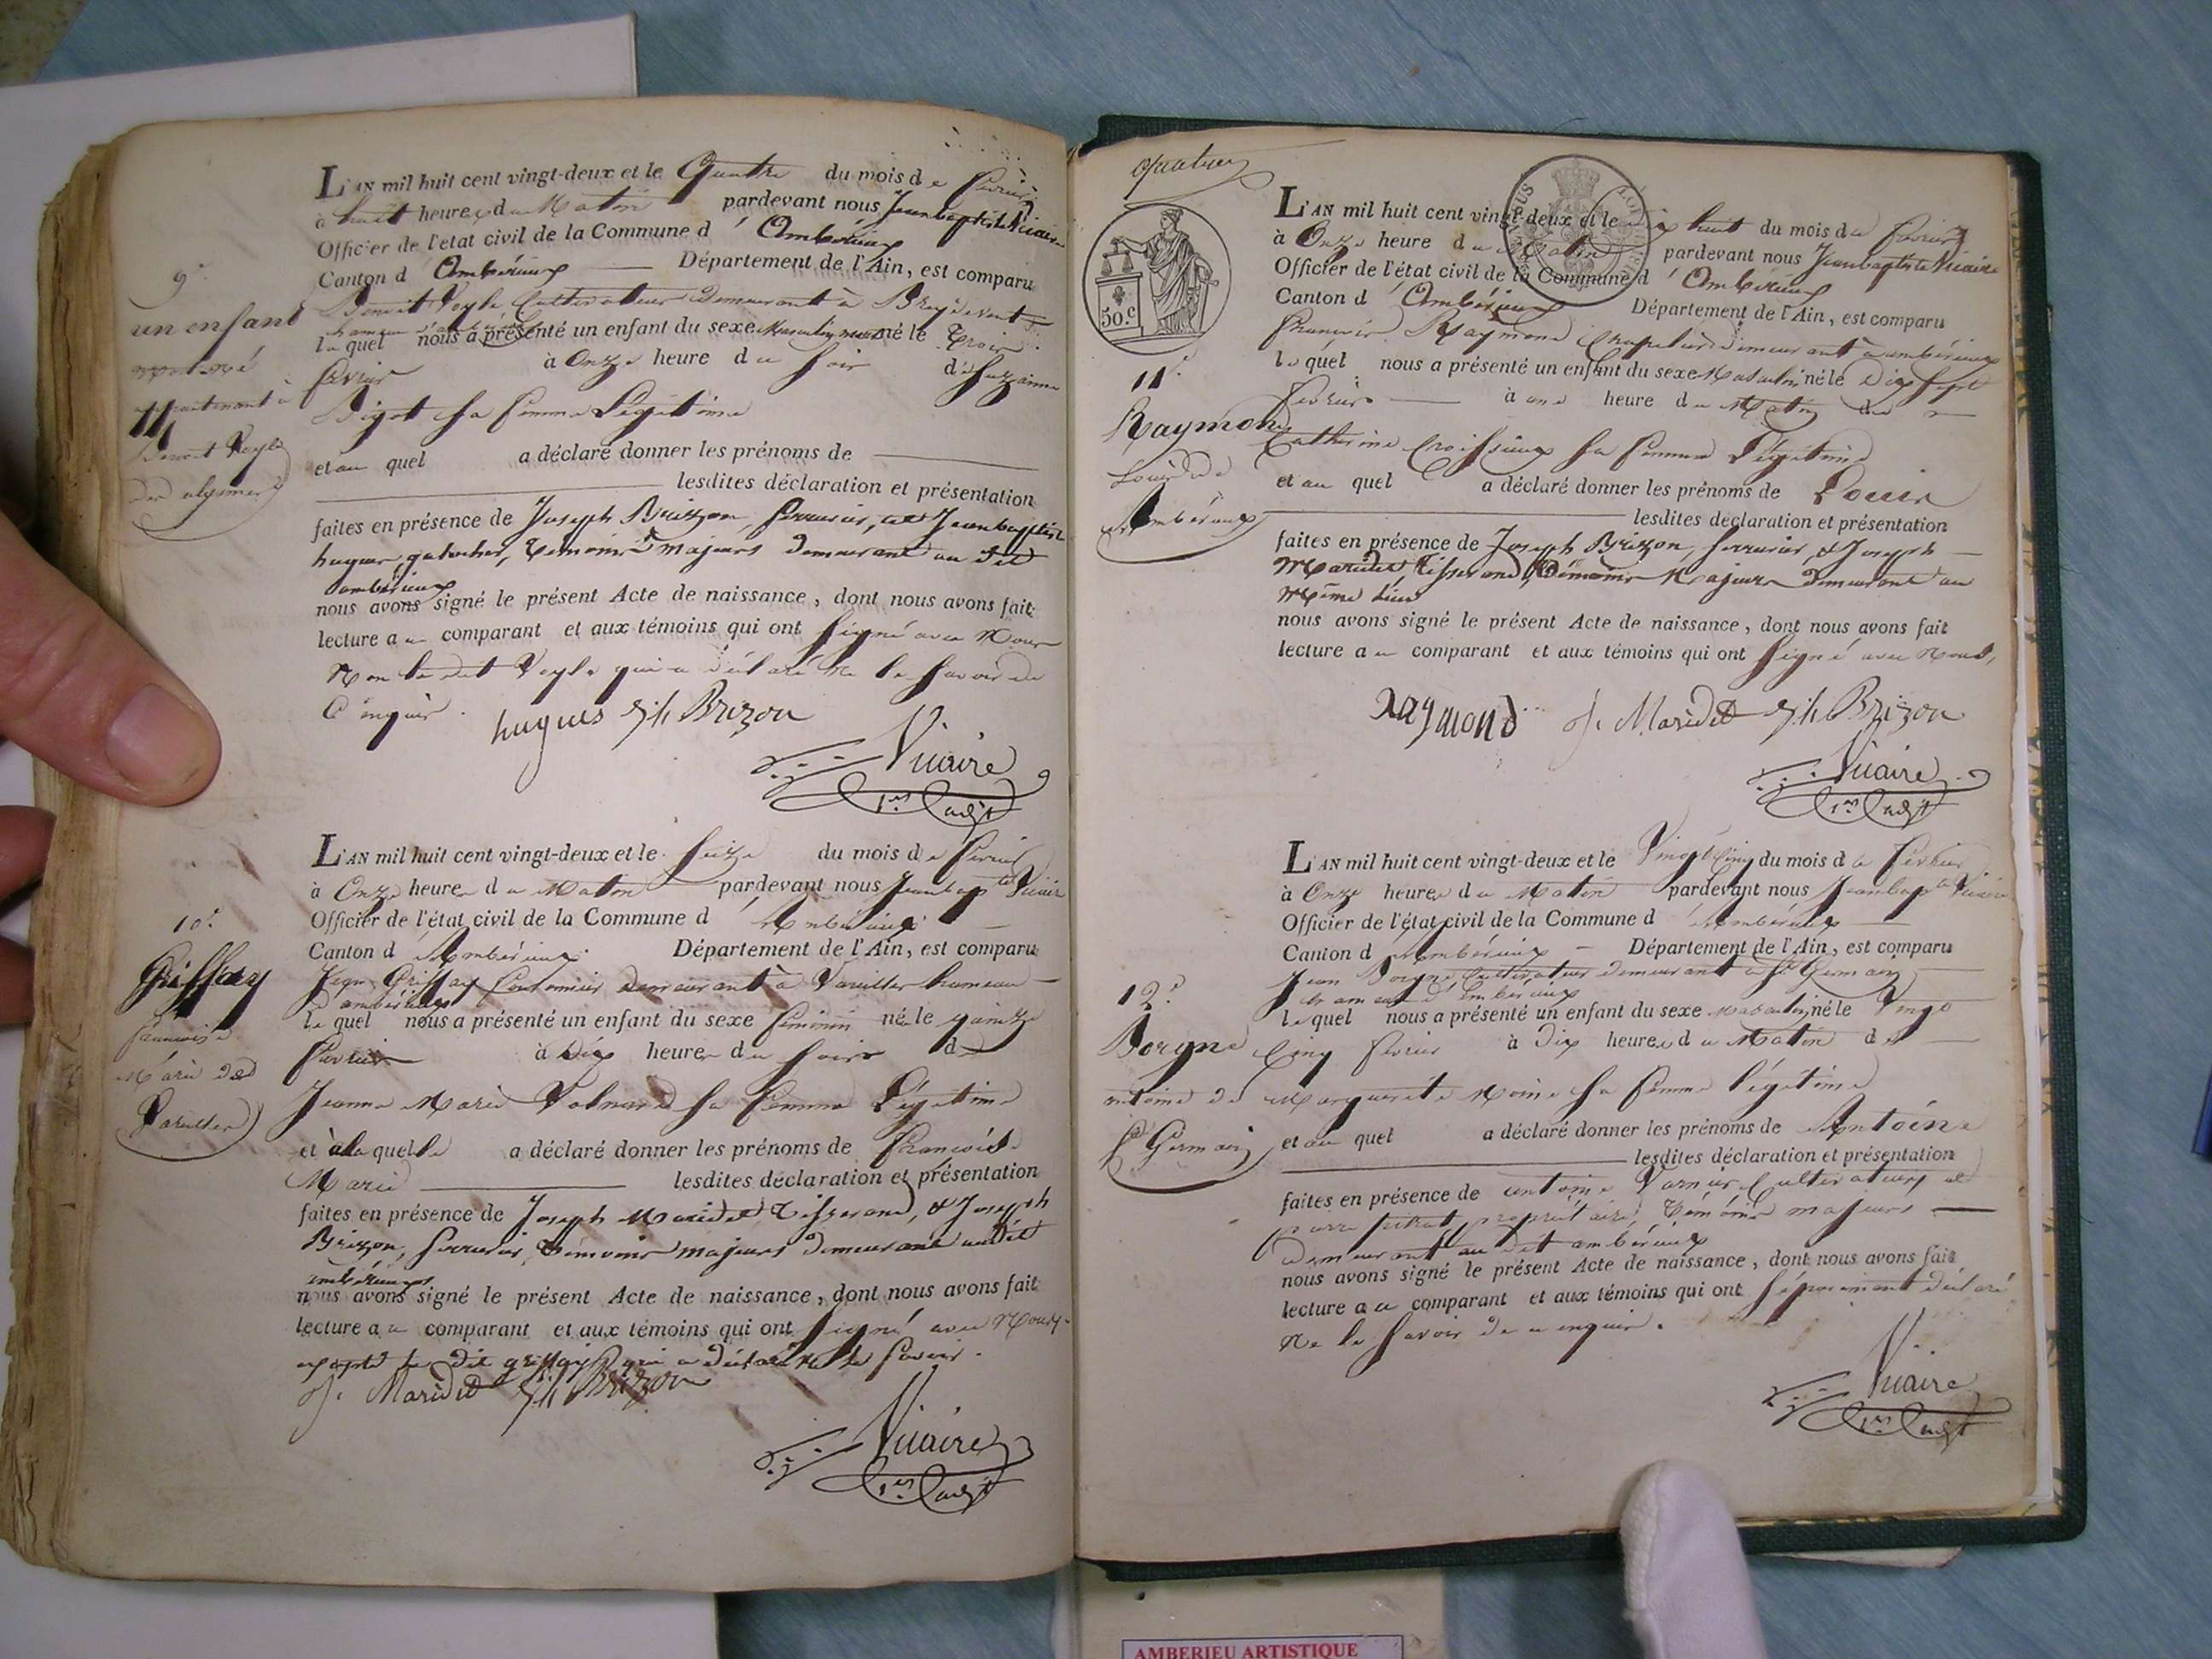 9.e
un enfant
mort né
appartenant à
Benoit Veyle
des alymes
L'AN mil huit cent vingt-deux et le Quatre du mois de fevrier
à huit heures du Matin pardevant nous Jeanbaptiste Vicaire
Officier de l'état civil de la Commune d'Ambérieux
Canton d'Ambérieux Département de l'Ain, est comparu
Benoit Veyle Cultivateur demeurant à
hameau d'ambérieux
le quel nous a présenté un enfant du sexe Masculin mort né le Trois
fevrier à Onze heure du soir de Suzanne
Bigot sa femme Légitime
et au quel a déclaré donner les prénoms de
lesdites déclaration et présentation
faites en présence de Joseph Brizon, serrurier, et Jeanbaptiste
hugues, galocher, temoins majeurs demeurant au dit
ambérieux
nous avons signé le présent Acte de naissance, dont nous avons fait
lecture au comparant et aux témoins qui ont signé avec Nous
Non le dit Veyle qui a déclaré ne le savoir de
Ce enquis.
hugues Jh Brizon
Vicaire
1er adjt
10.e
Griffay
francoise
Marie de
Vareilles
L'AN mil huit cent vingt-deux et le seize du mois de fevrier
à Onze heures du Matin pardevant nous Jeanbapte Vicaire
Officier de l'état civil de la Commune d'Ambérieux
Canton d'Ambérieux Département de l'Ain, est comparu
Jean Griffay demeurant à Vareilles hameau
d'ambérieux
le quel nous a présenté un enfant du sexe féminin née le quinze
fevrier à Dix heures du soir de
Jeanne Marie Volnard sa femme Légitime
et à la quelle a déclaré donner les prénoms de francoise
Marie lesdites déclaration et présentation
faites en présence de Joseph Maridet Tisserand, & Joseph
Brizon, serrurier, témoins majeurs demeurant audit
ambérieux
nous avons signé le présent Acte de naissance, dont nous avons fait
lecture au comparant et aux témoins qui ont signé avec Nous
excepté le dit griffay qui a déclaré ne le savoir.
J. Maridet Jh Brizon
Vicaire
1er adjt
quatre
50.c
11.e
Raymond
Louis de
Ambérieux
L'AN mil huit cent vingt-deux et le dix huit du mois de fevrier
à Onze heure du Matin pardevant nous Jeanbaptiste Vicaire
Officier de l'état civil de la Commune d'Ambérieux
Canton d'Ambérieux Département de l'Ain, est comparu
francois Raymond Chapelier demeurant à ambérieux
le quel nous a présenté un enfant du sexe Masculin né le Dix sept
fevrier à une heure du Matin de
Catherine Croissieux sa femme Légitime
et au quel a déclaré donner les prénoms de Louis
lesdites déclaration et présentation
faites en présence de Joseph Brizon, serrurier, & Joseph
Maridet Tisserand, témoins Majeurs demeurant au
Même lieu
nous avons signé le présent Acte de naissance, dont nous avons fait
lecture au comparant et aux témoins qui ont signé avec Nous,
raymond J. Maridet Jh Brizon
Vicaire
1er adjt
12.e
Borgne
antoine de
St Germain
L'AN mil huit cent vingt-deux et le Vingt Cinq du mois de fevrier
à Onze heures du Matin pardevant nous Jeanbapte Vicaire
Officier de l'état civil de la Commune d'Ambérieux
Canton d'ambérieux Département de l'Ain, est comparu
Jean Borgne Cultivateur demeurant à St Germain
hameau d'Ambérieux
le quel nous a présenté un enfant du sexe Masculin né le Vingt
Cinq fevrier à Dix heures du Matin de
Marguerite Moine sa femme légitime
et au quel a déclaré donner les prénoms de Antoine
lesdites déclaration et présentation
faites en présence de antoine Cultivateur, et
pierre propriétaire, témoins majeurs
demeurant au dit ambérieux
nous avons signé le présent Acte de naissance, dont nous avons fait
lecture au comparant et aux témoins qui ont séparément déclaré
Ne le savoir de ce enquis.
Vicaire
1er adjt
AMBERIEU ARTISTIQUE